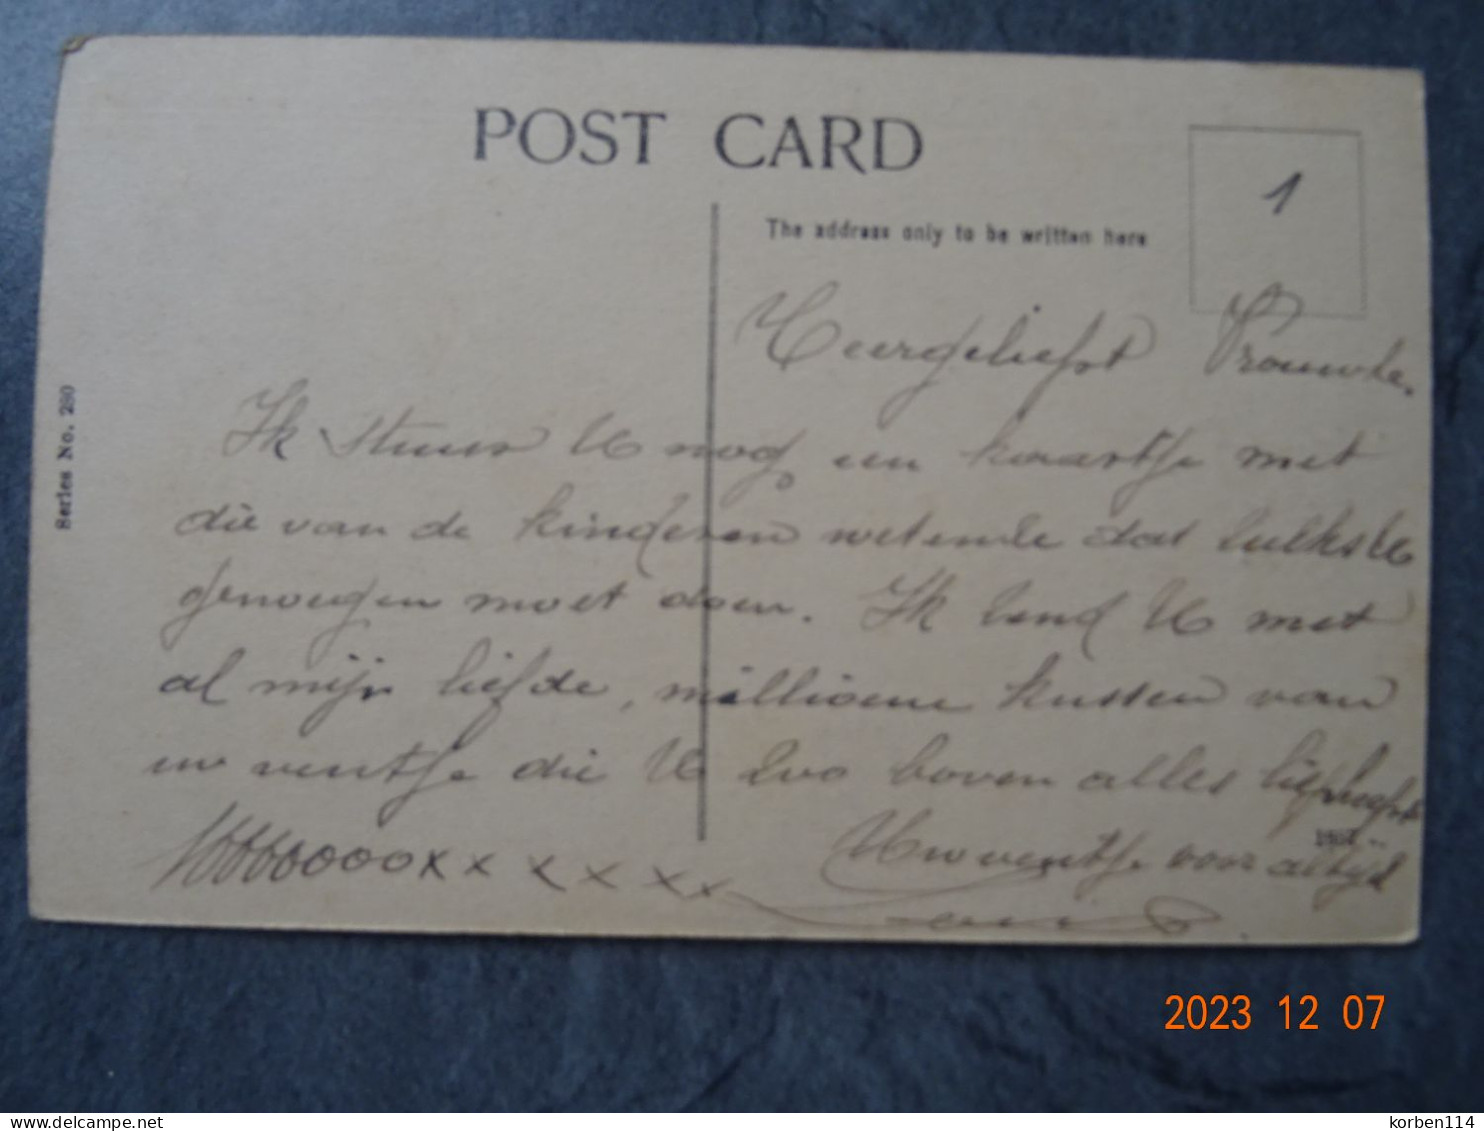 POST CARD
1
The address only to be written here
Series No. 280
Teergeliefst Vrouwke.
Ik stuur U nog een kaartje met
die van de kinderen wetende dat zulks U
genoegen moet doen. Ik zend U met
al mijn liefde, millioene kussen van
uw ventje die U zoo boven alles lief
Uw ventje voor altijd
Louis
2023 12 07
delcampe.net
korben114